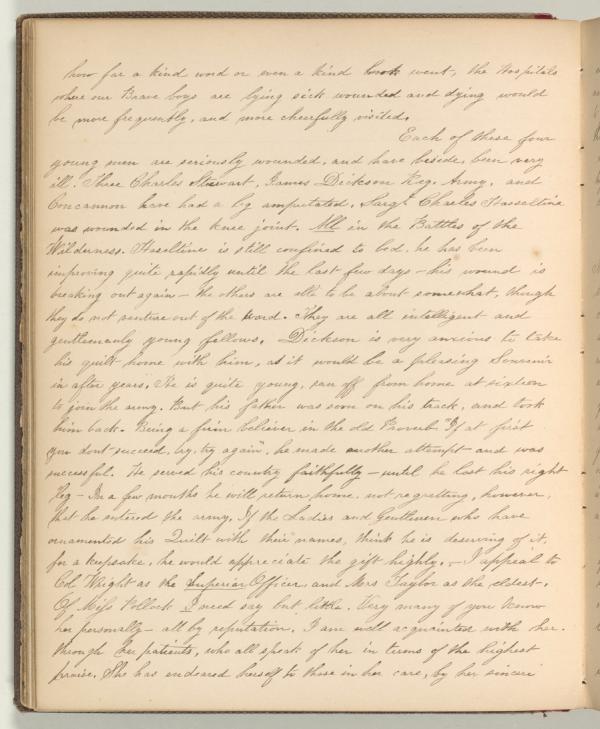 how far a kind word or even a kind look went, the Hospitals
where our Brave boys are lying sick wounded and dying would
be more frequently, and more cheerfully visited.
Each of these four
young men are seriously wounded, and have beside, been very
ill. Three Charles Stewart, James Dickson Reg. Army, and
Concannon have had a leg amputated. Sargt Charles Hasseltine
was wounded in the knee joint. All in the Battles of the
Wilderness. Haseltine is still confined to bed, he has been
improving quite rapidly until the last few days – his wound is
breaking out again – the others are able to be about somewhat, though
they do not venture out of the Ward. They are all intelligent and
gentlemanly young fellows. Dickson is very anxious to take
his quilt home with him, as it would be a pleasing Souvenir
in after years. He is quite young, ran off from home at sixteen
to join the army. But his father was soon on his track, and took
him back. Being a firm believer in the old Proverb "If at first
you dont succeed, try, try again", he made another attempt – and was
successful. He served his country faithfully – until he lost his right
leg – In a few months he will return home, not regretting, however,
that he entered the army. If the Ladies and Gentlemen who have
ornamented his Quilt with their names, think he is deserving of it,
for a keepsake, he would appreciate the gift highly. – I appeal to
Col. Wright as the Superior Officer and Mrs Taylor as the eldest.
Of Miss Pollock I need say but little. Very many of you know
her personally – all by reputation. I am well acquainted with her.
through her patients, who all speak of her in terms of the highest
praise. She has endeared herself to those in her care, by her sincere